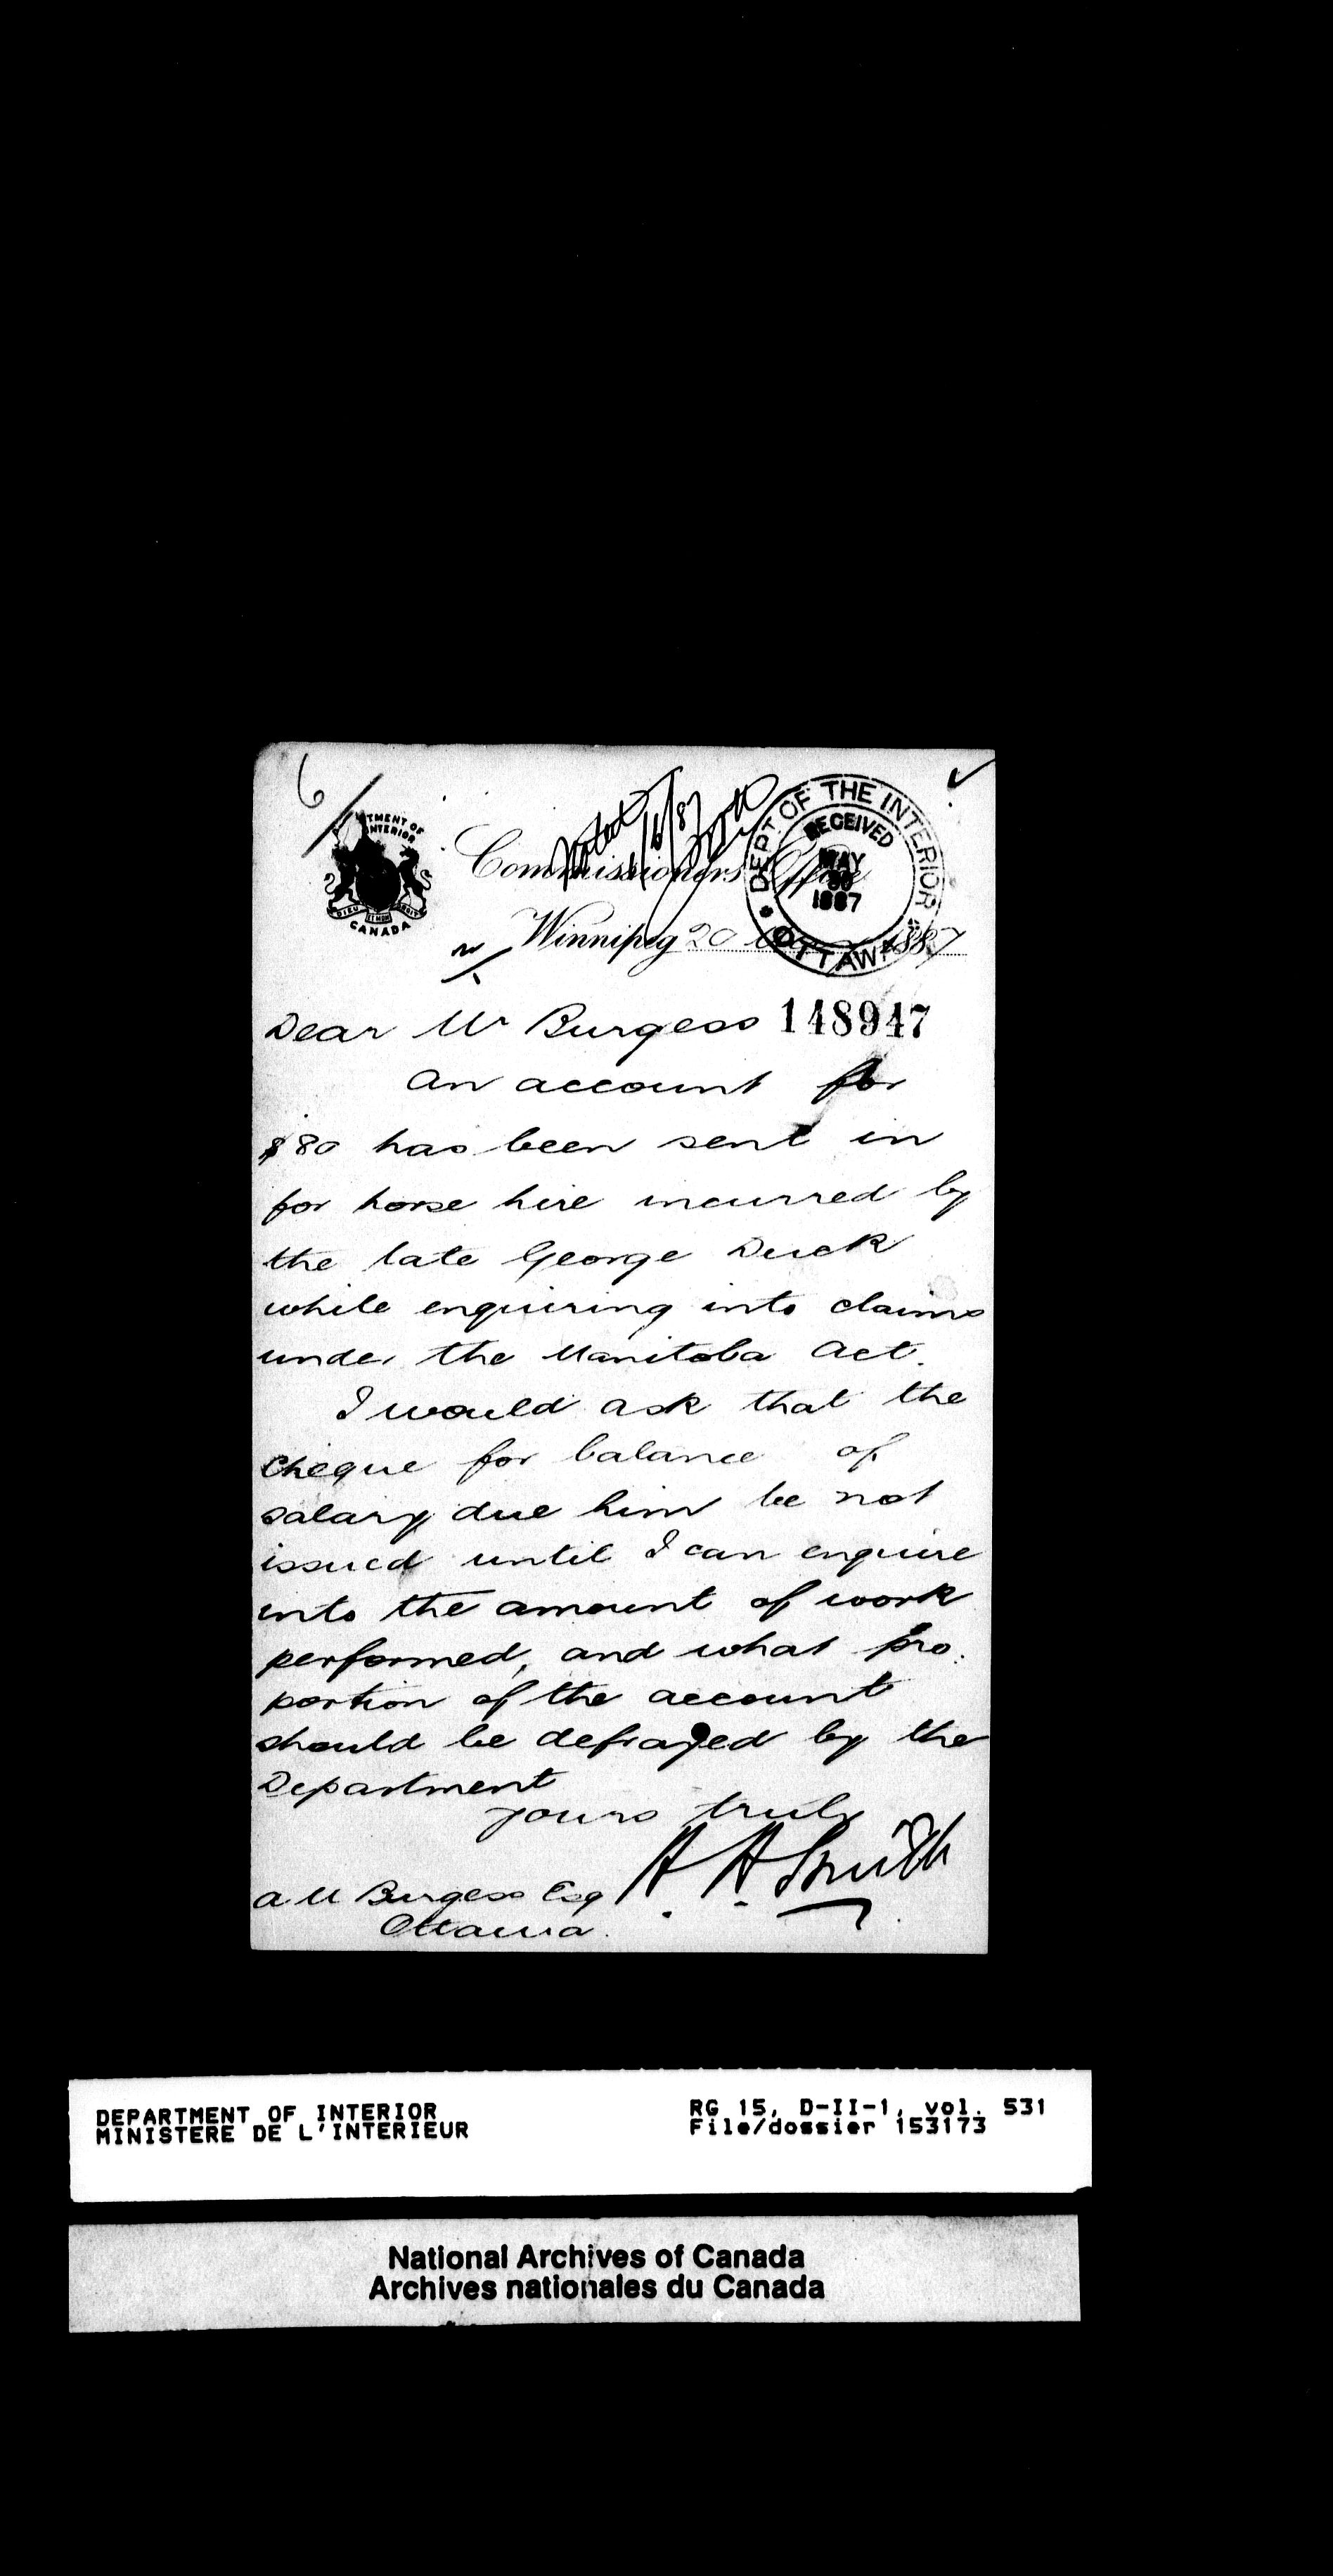 6
DEPARTMENT OF
INTERIOR
DIEU ET MON DROIT
CANADA
Noted
1/6/87
Commissioners Office
DEPT. OF THE INTERIOR
RECEIVED
MAY
1887
OTTAWA
Winnipeg 20 1887
Dear Mr Burgess 148947
An account for
$80 has been sent in
for horse hire incurred by
the late George Duck
while enquiring into claims
under the Manitoba Act.
I would ask that the
cheque for balance of
salary due him be not
issued until I can enquire
into the amount of work
performed, and what pro:
portion of the account
should be defrayed by the
Department
Yours truly
H. H. Smith
A M Burgess Esq
Ottawa.
DEPARTMENT OF INTERIOR
MINISTERE DE L'INTERIEUR
RG 15, D-II-1, vol. 531
File/dossier 153173
National Archives of Canada
Archives nationales du Canada